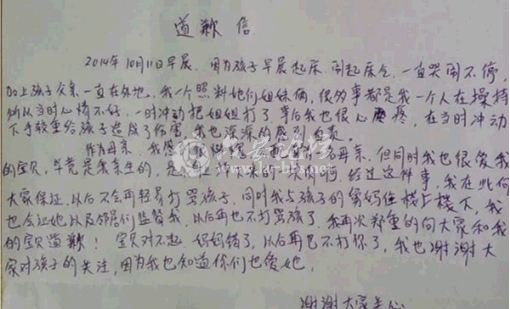 道歉信
2014年10月11日早晨，因为孩子早晨起床，闹起床气，一直哭闹不停，
加上孩子父亲一直在外地，我一个照料她们姐妹俩，很多事都是我一个人在操持
所以当时心情不好，一时冲动把姐姐打了，事后我也很心疼，在当时冲动
下手较重给孩子造成了伤害，我也深深的感到自责。
作为母亲，我 母亲，但同时我也很爱我
的宝贝，毕竟是我亲生的， 经过这件事，我在此向
大家保证，以后不会再轻易打骂孩子，同时我与孩子的爸妈住楼上楼下，我
也会让她以及邻居们监督我，以后再也不打骂孩了，我再次郑重的向大家和我
的宝贝道歉！宝贝对不起，妈妈错了，以后再也不打你了，我也谢谢大
家对孩子的关注，因为我也知道你们也爱她。
谢谢大家关心